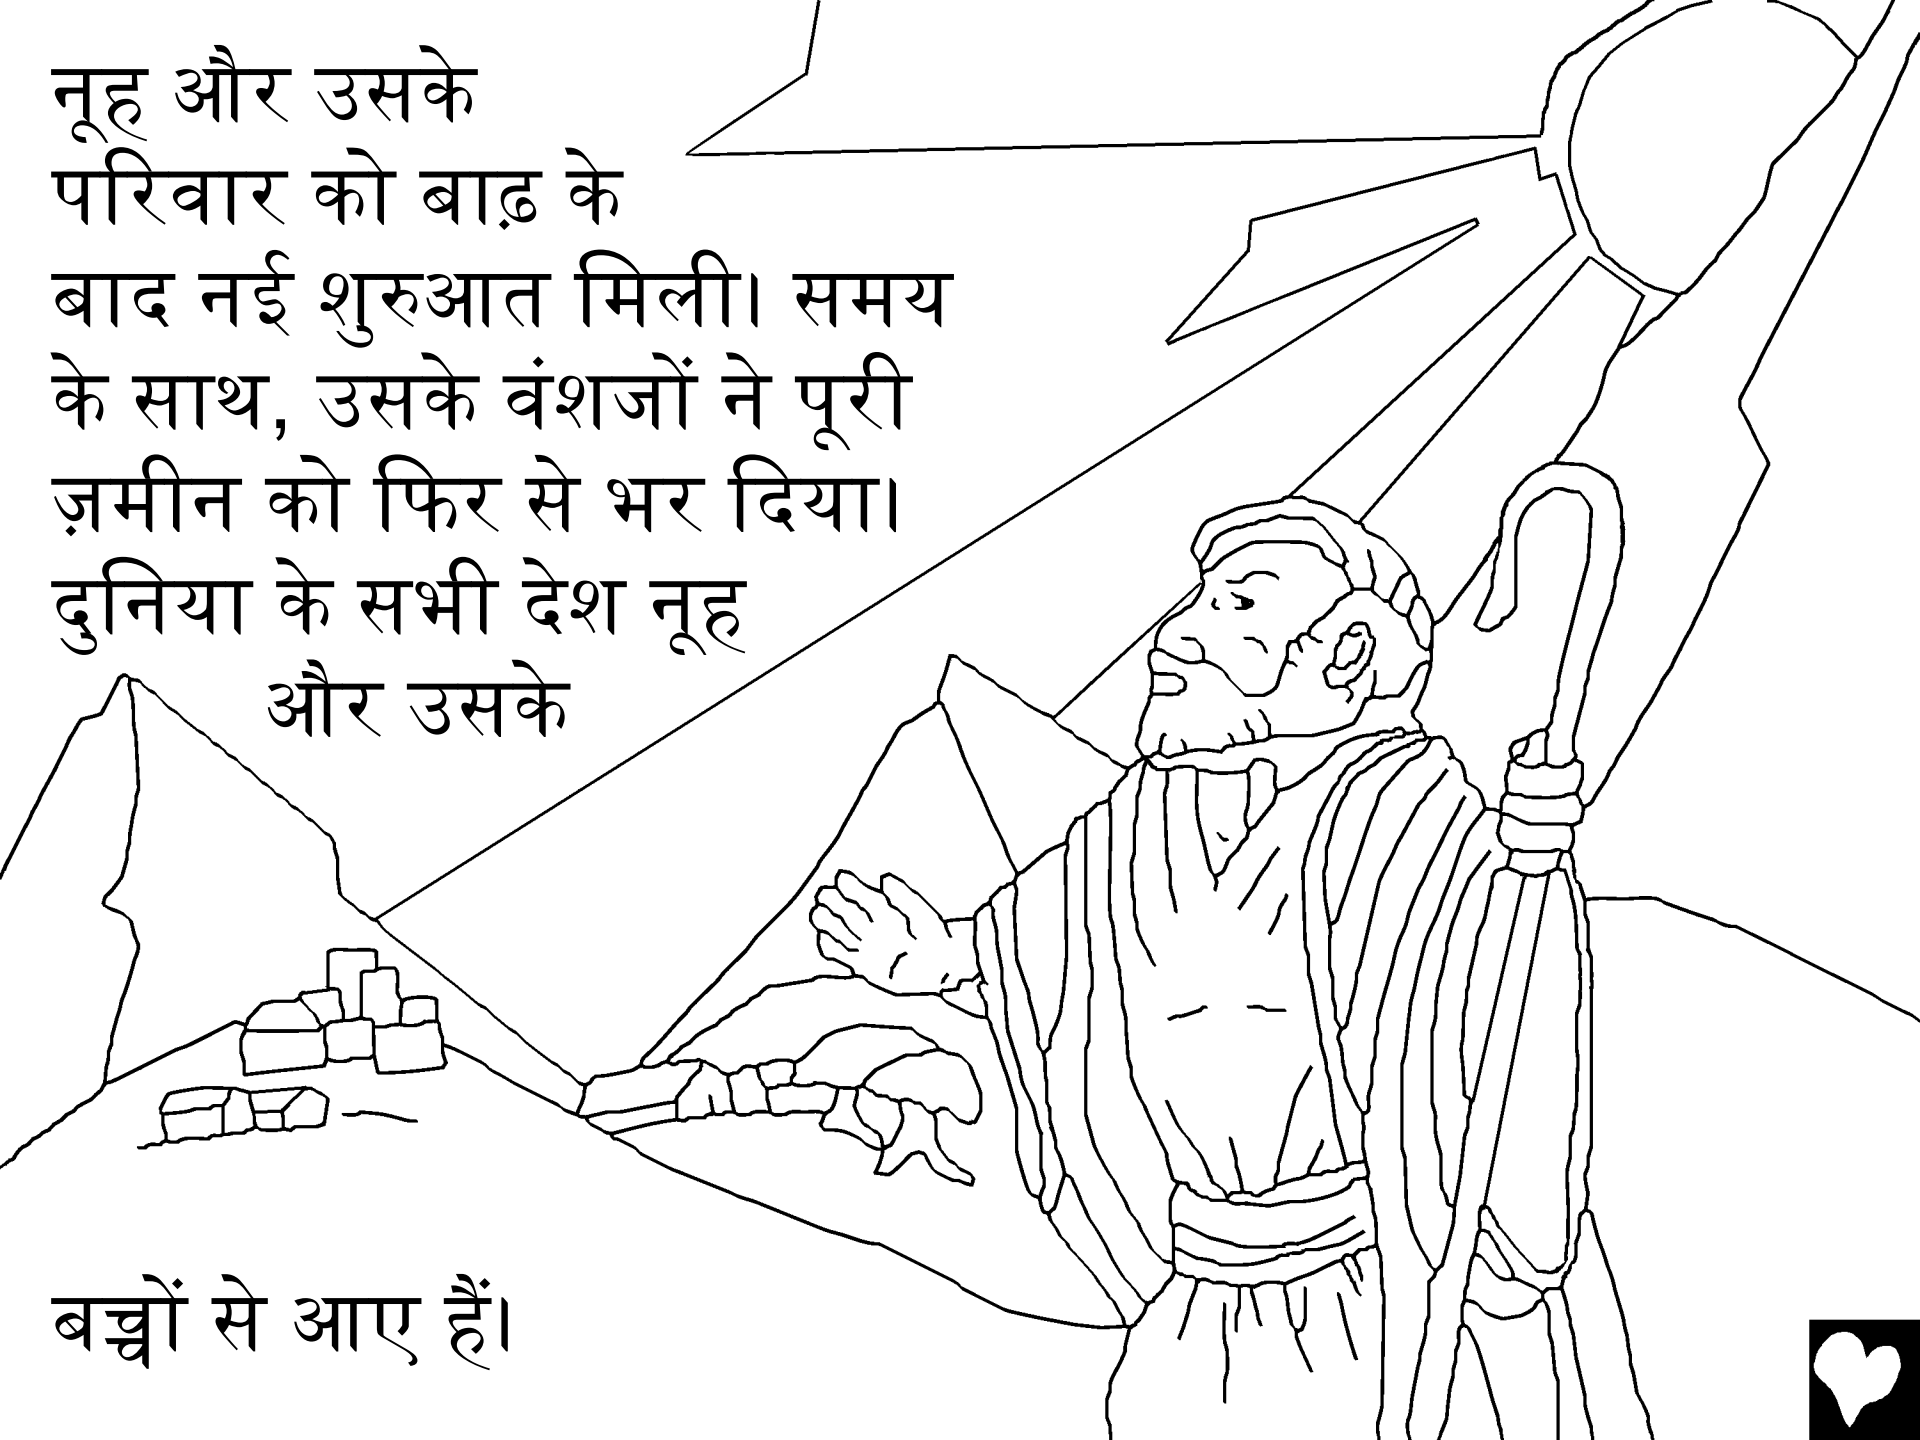 नूह और उसके
परिवार को बाढ़ के
बाद नई शुरुआत मिली। समय
के साथ, उसके वंशजों ने पूरी
ज़मीन को फिर से भर दिया।
दुनिया के सभी देश नूह
और उसके
बच्चों से आए हैं।